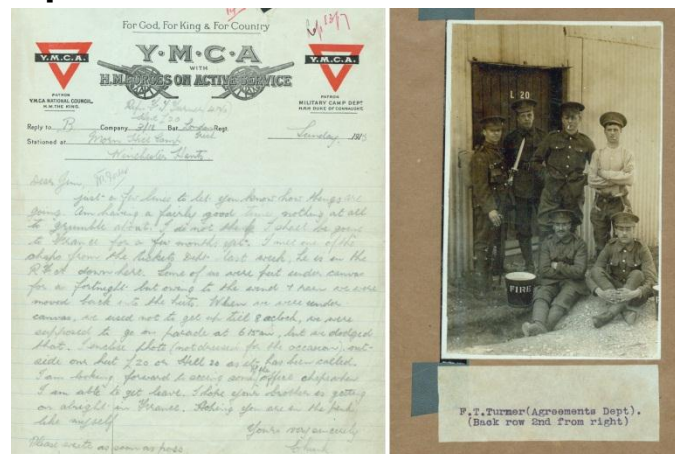 For God, For King & For Country
Y·M·C·A
WITH
H.M. FORCES ON ACTIVE SERVICE
Y.M.C.A.
PATRON
Y.M.C.A. NATIONAL COUNCIL,
H.M. THE KING.
Y.M.C.A.
PATRON
MILITARY CAMP DEPT
H.R.H. DUKE OF CONNAUGHT.
Reply to B Company Bat. London Regt.
Sunday, 1915
Stationed at Morn Hill Camp
Winchester Hants
Dear Jim,
just a few lines to let you know how things are
going. Am having a fairly good time, nothing at all
to grumble about. I do not think I shall be going
to France for a few months yet. I met one of the
chaps from the tickets dept last week, he is in the
down here. Some of us were put under canvas
for a fortnight but owing to the wind & rain we were
moved back into the huts. When we were under
canvas, we used not to get up till 8 oclock, we were
supposed to go on parade at 6.15 am, but we dodged
that. I enclose photo (not dressed for the occasion) out-
side our hut L20 or Hell 20 as its has been called.
I am looking forward to seeing some of the office chaps when
I am able to get leave. I hope your brother is getting
on alright in France. Hoping you are in the pink
like myself
Yours very sincerely
Please write as soon as poss.
L 20
FIRE
F.T.Turner(Agreements Dept).
(Back row 2nd from right)